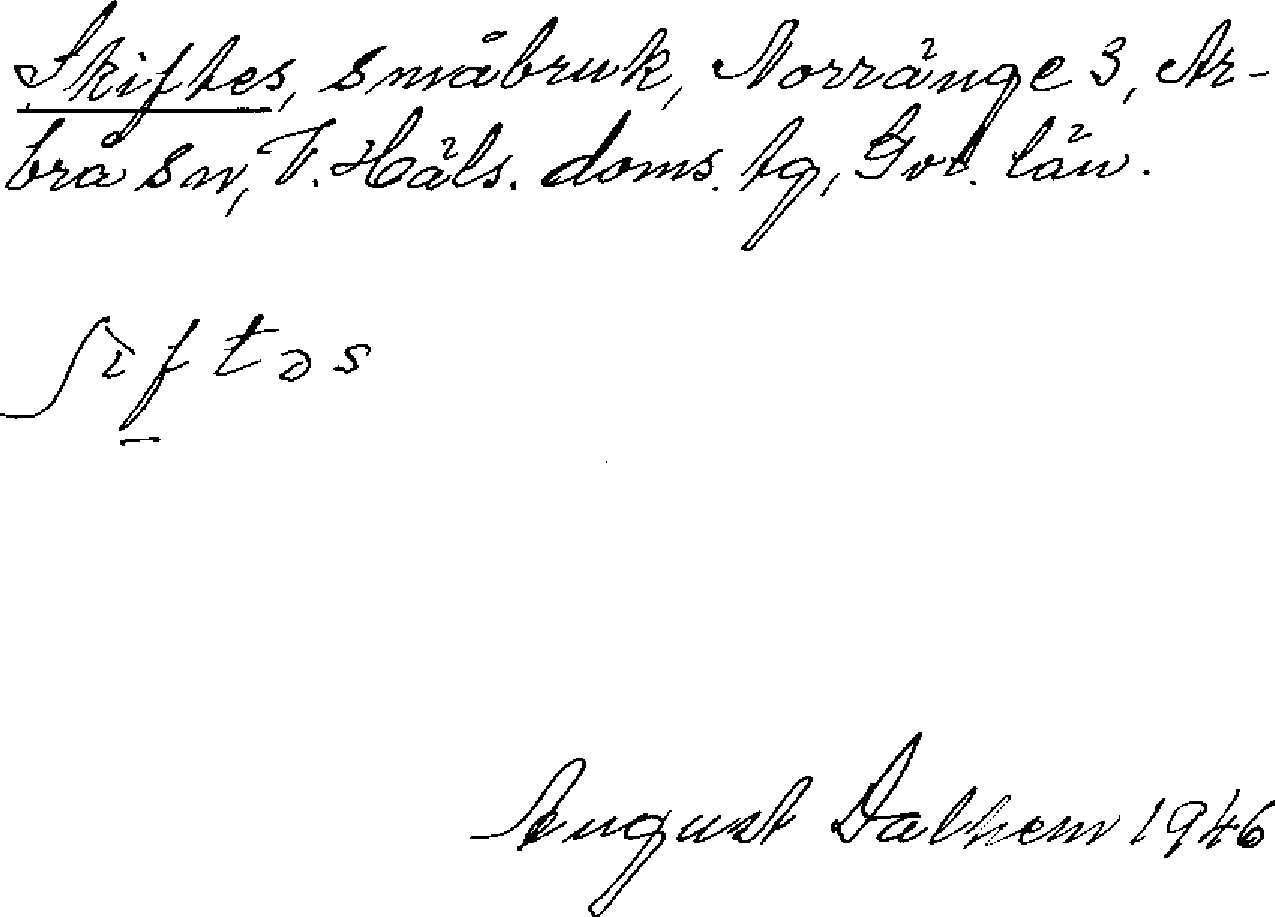 Skiftes, småbruk, Norränge 3, Ar-
brå sn, V. Häls. doms. tg, Gvl. län.
August Dalhem 1946